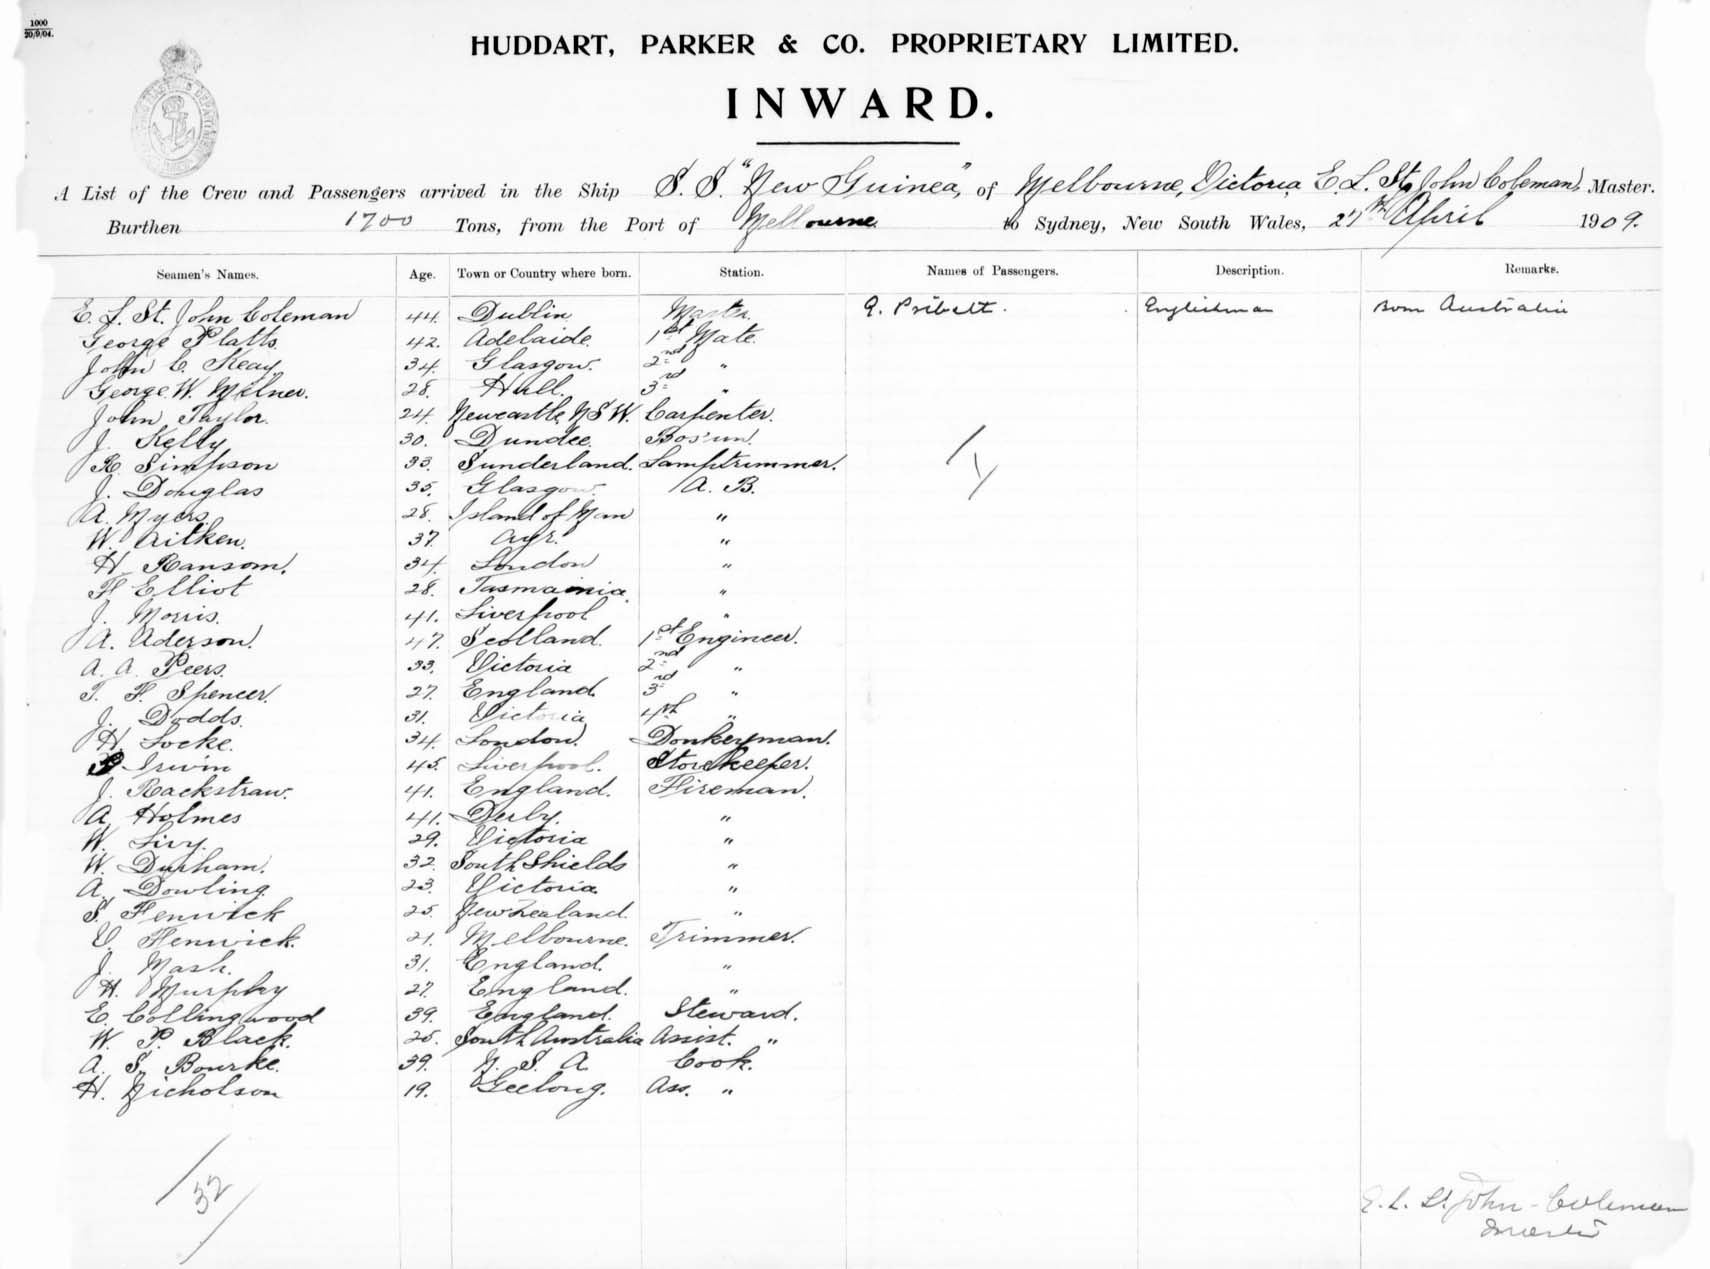 1000
20/9/04.
HUDDART, PARKER & CO. PROPRIETARY LIMITED.
INWARD.
A List of the Crew and Passengers arrived in the Ship S. S. "New Guinea", of Melbourne, Victoria, E. L. St. John Coleman, Master.
Burthen 1700 Tons, from the Port of Melbourne to Sydney, New South Wales, 27th April 1909.
Seamen's Names. Age. Town or Country where born. Station. Names of Passengers. Description. Remarks.
E. L. St. John Coleman 44. Dublin Master. Pribelt. Englishman Born Australia
George Platts. 42. Adelaide. 1st Mate.
John C. Keay 34. Glasgow. 2nd "
George W. Milner. 28. Hull. 3rd "
John Taylor. 24. Newcastle, N S W. Carpenter.
J. Kelly 30. Dundee. Bos'un.
R. Simpson 33. Sunderland. Lamptrimmer.
J. Douglas 35. Glasgow. A. B.
A. Myers. 28. Island of Man "
W. Aitken. 37. Ayr. "
H. Ransom. 34. London "
F Elliot 28. Tasmainia. "
J. Morris. 41. Liverpool "
A. Aderson. 47. Scotland. 1st Engineer.
A. A. Peers. 33. Victoria 2nd "
T. F. Spencer. 27. England. 3rd "
J. Dodds. 31. Victoria 4th "
H. Locke. 34. London. Donkeyman.
Irwin 45. Liverpool. Storekeeper.
J. Rackstraw. 41. England. Fireman.
A. Holmes 41. Derby. "
W. Livy. 29. Victoria "
W. Durham. 32. South Shields "
A. Dowling. 23. Victoria "
S. Fenwick 25. New Zealand. "
V. Fenwick. 21. Melbourne. Trimmer.
J. Mash. 31. England. "
H. Murphy 27. England. "
E. Collingwood 39. England. Steward.
W. P. Black. 25. South Australia Assist. "
A. S. Bourke. 39. S. A Cook.
H. Nicholson 19. Geelong. Ass. "
32
E. L. St. John-Coleman
Master